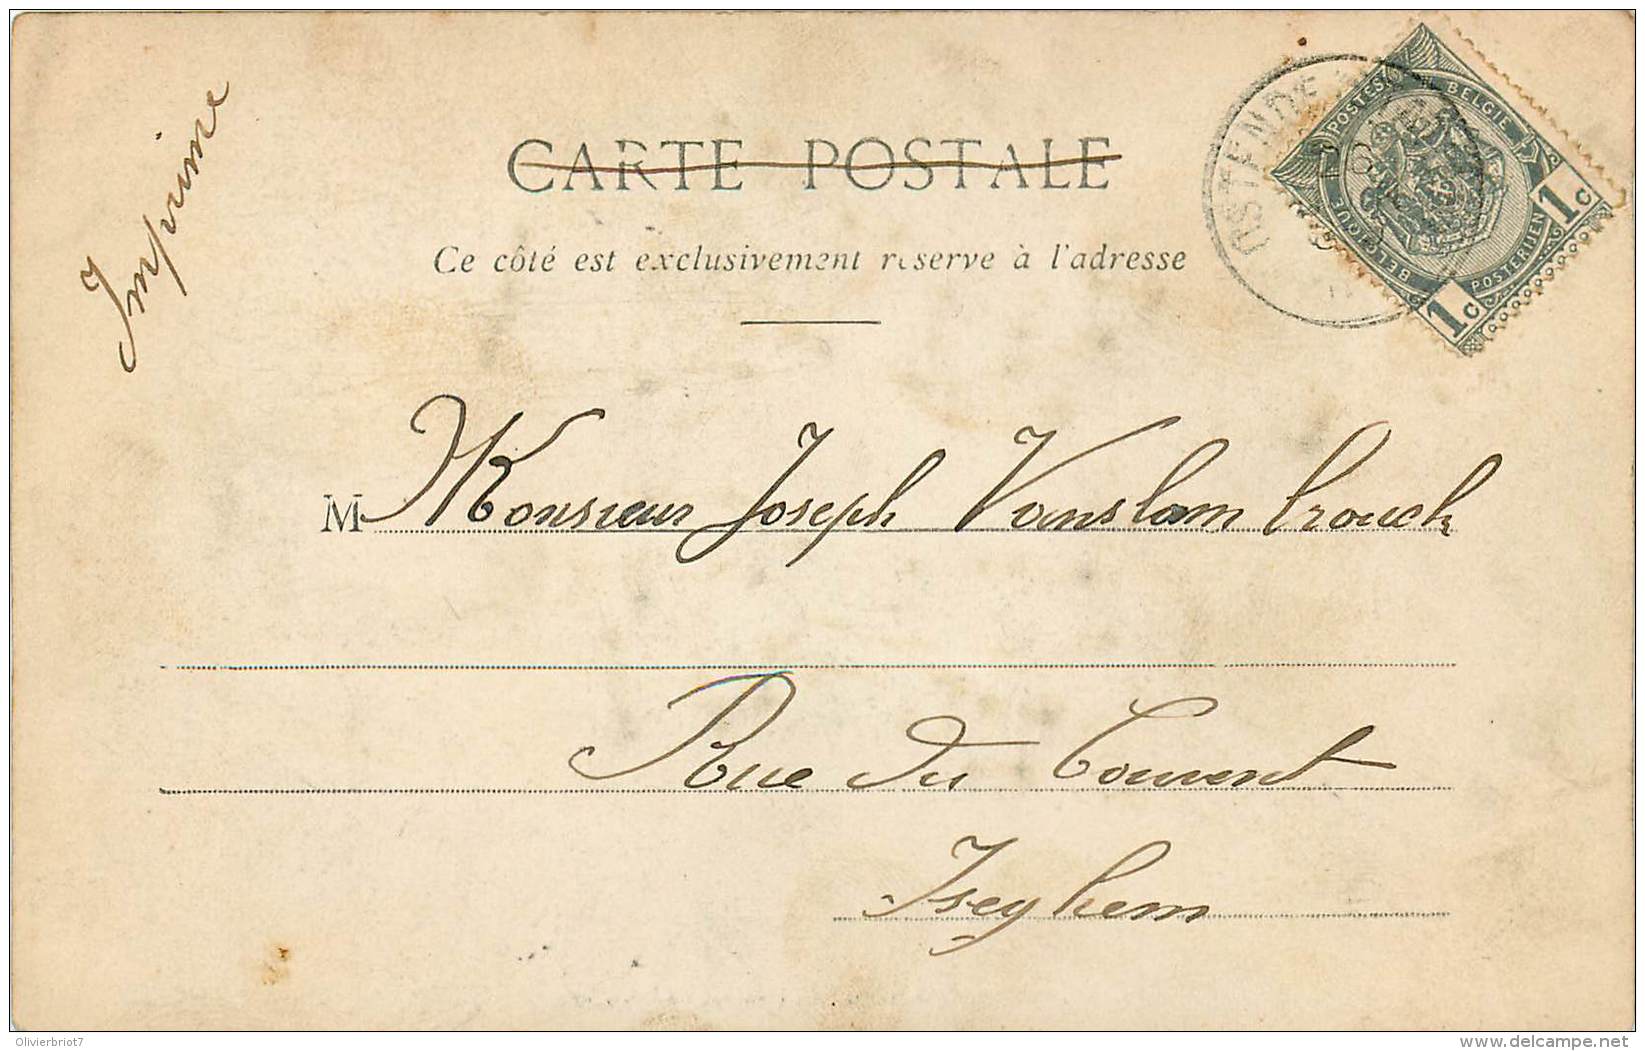 Imprime
CARTE POSTALE
Ce côté est exclusivement reserve à l'adresse
OSTENDE
POSTES BELGIE
BELGIQUE POSTERIJEN
1c 1c
M Monsieur Joseph Vanslambrouck
Rue du Couvent
Iseghem
Olivierbriot7
www.delcampe.net